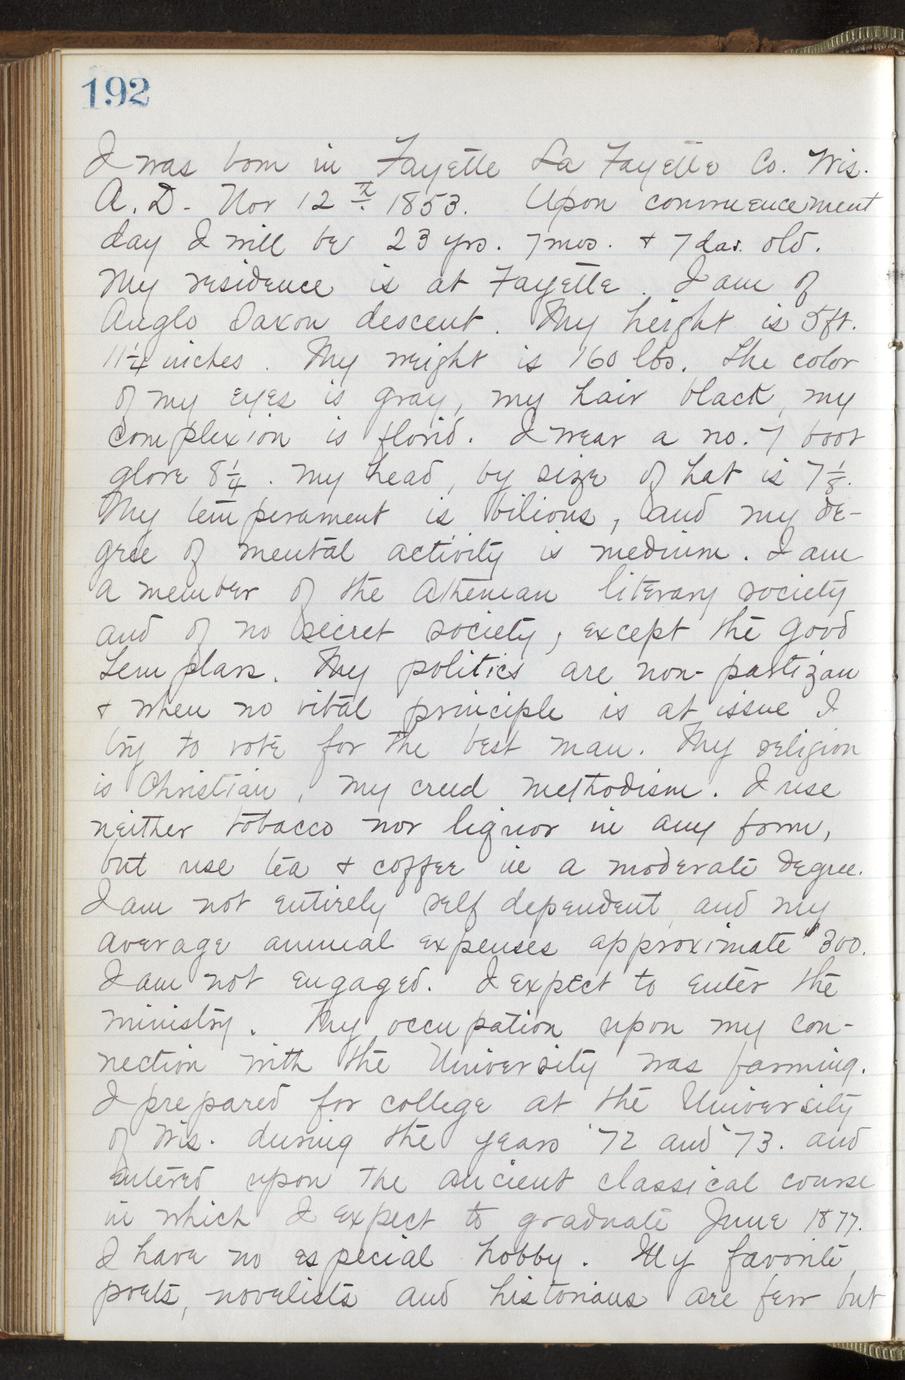 192
I was born in Fayette La Fayette Co. Wis.
A. D. Nov 12th 1853. Upon commencement
day I will be 23 yrs. 7 mos. & 7 das. old.
My residence is at Fayette. I am of
Anglo Saxon descent. My height is 5ft.
11 1/4 inches. My weight is 160 lbs. The color
of my eyes is gray, my hair black, my
complexion is florid. I wear a no. 7 boot
glove 8 1/4. My head, by size of hat is 7 1/8.
My temperament is bilious, and my de-
gree of mental activity is medium. I am
a member of the Athenian literary society
and of no secret society, except the Good
Templars. My politics are non-partizan
& when no vital principle is at issue I
try to vote for the best man. My religion
is Christian, my creed methodism. I use
neither tobacco nor liquor in any form,
but use tea & coffee in a moderate degree.
I am not entirely self dependent and my
average annual expenses approximate $300.
I am not engaged. I expect to enter the
ministry. My occupation upon my con-
nection with the University was farming.
I prepared for college at the University
of Wis. during the years '72 and '73. and
entered upon the ancient classical course
in which I expect to graduate June 1877.
I have no especial hobby. My favorite
poets, novelists and historians are few but